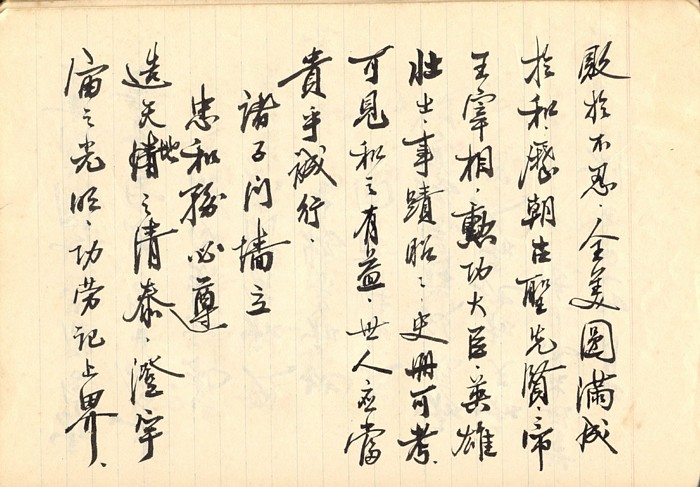 敗於不忍、全美圓滿成
於和、歷朝古聖先賢、帝
王宰相、勲功大臣、英雄
壯士、事蹟昭々、史册可考、
可見和之有益、世人应當
貴乎誠行、
諸子门墻立
忠和務必遵
造天地之清泰、澄宇
宙之光明、功劳记上界、